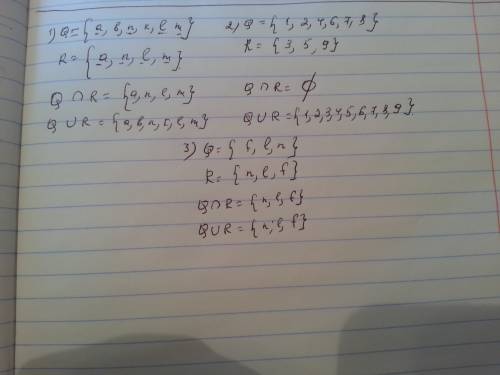 1) Q = { a, b, n, c, l, m }
R = { a, n, l, m }
Q ∩ R = { a, n, l, m }
Q ∪ R = { a, b, n, c, l, m }
2) Q = { 1, 2, 4, 6, 7, 8 }
R = { 3, 5, 9 }
Q ∩ R = ∅
Q ∪ R = { 1, 2, 3, 4, 5, 6, 7, 8, 9 }
3) Q = { f, l, n }
R = { n, l, f }
Q ∩ R = { n, l, f }
Q ∪ R = { n, l, f }